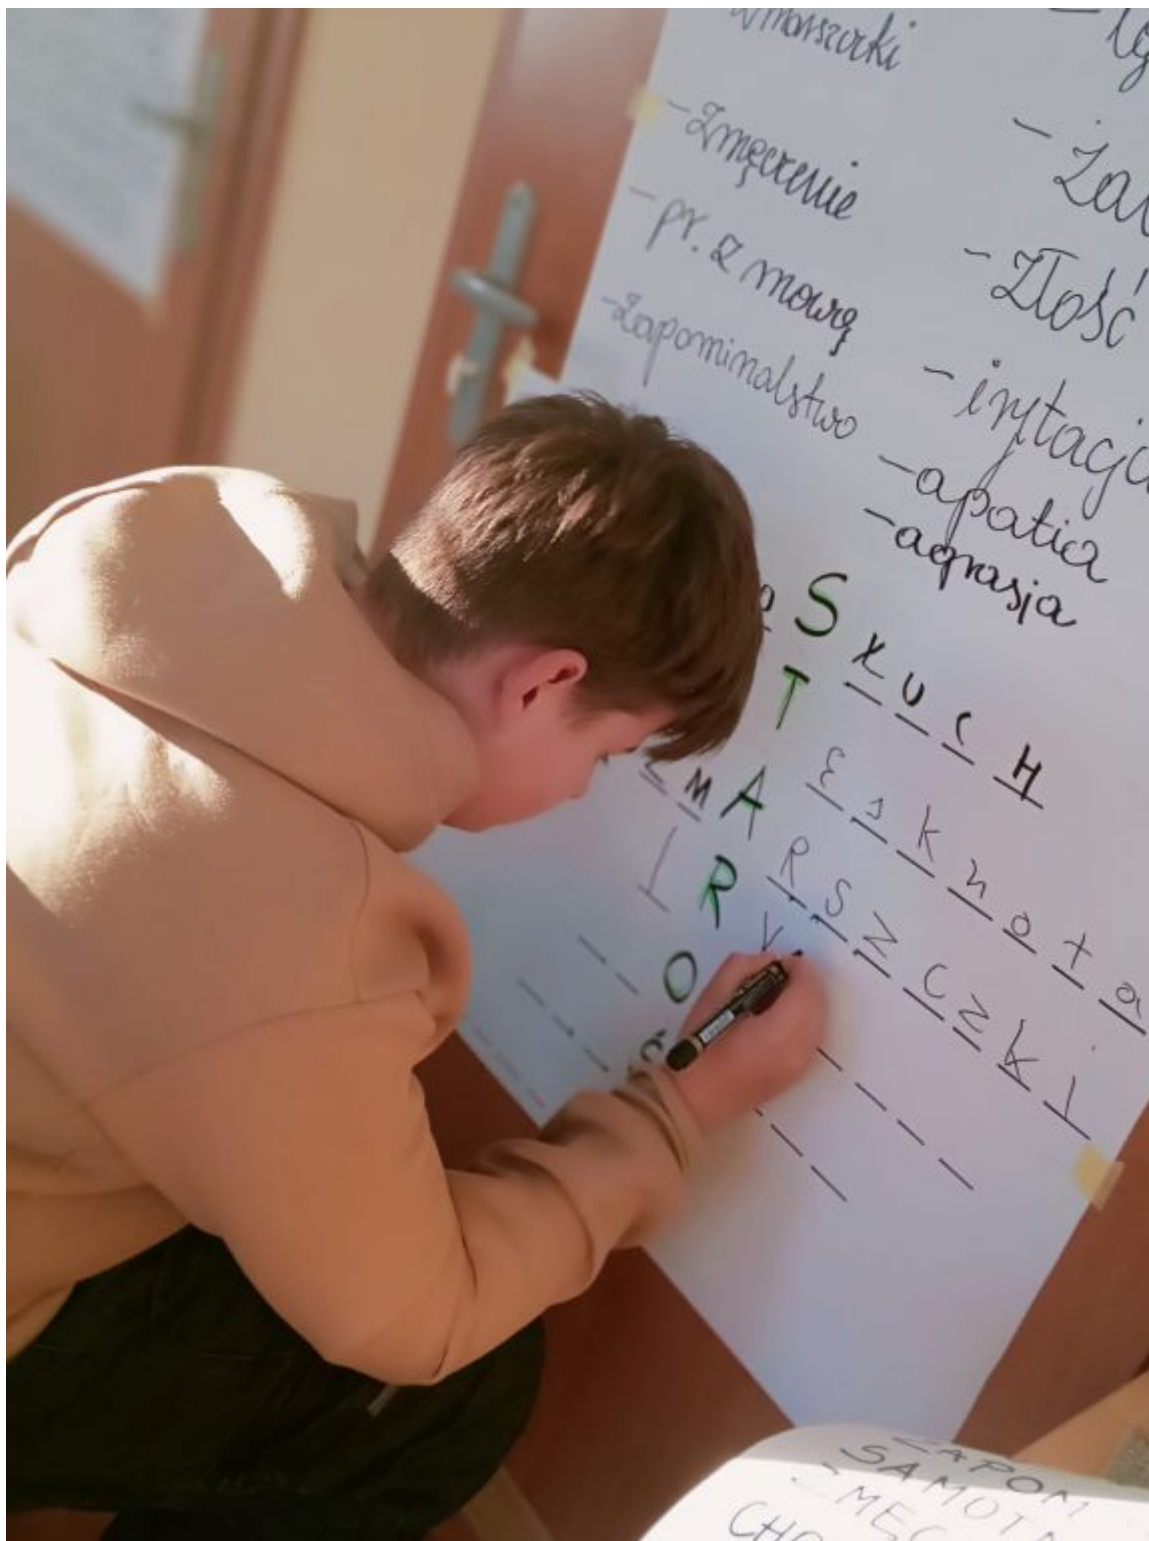 zmarszczki
- Zmęczenie
- pr. z mową
- Zapominalstwo
- żal
- złość
- irytacja
- apatia
- agrasja
SŁUCH
TĘsknota
ZMARSZCZKI
IR
O
ZAPOM
SAMOTN
ZMĘC
CHO